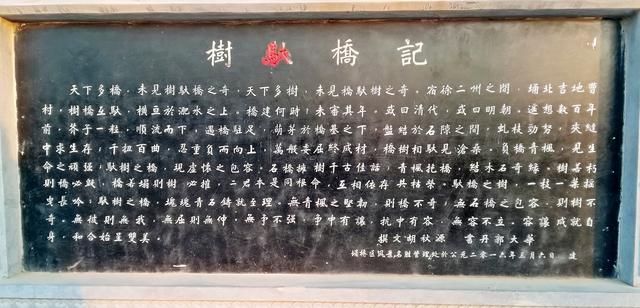 樹馱橋記
天下多橋，未見樹馱橋之奇。天下多樹，未見橋馱樹之奇。宿徐二州之間，埇北古地曹
村。樹橋互馱，橫亘於淝水之上。橋建何時，未審其年，或曰清代，或曰明朝。遙想數百年
前，芥子一粒，順流而下，遇橋駐足，萌芽於橋基之下，盤結於石隙之間，虬枝勁努，夾縫
中求生存，千扭百曲，忍重負而向上，萬般委屈終成材，橋樹相馱見滄桑。負橋青楓，見生
命之頑强；馱樹之橋，現虛懷之包容。石橋擁樹千古佳話，青楓托橋，結木石奇緣。樹若朽
則橋必
，橋若塌則樹必摧，二者本是同根命，互相依存共枯榮。馱橋之樹，一枝一葉
長吟；馱樹之橋，塊塊青石鑄就至理。無青楓之堅韌，則橋不奇；無石橋之包容，則樹不
奇。無彼則無我，無屈則無伸，無爭不强，爭中有讓，抗中有容，無容不立，容讓成就自
身，和合始呈雙美。
撰文胡秋源 書丹郭大華
埇橋區風景名勝管理處於公元二零一六年三月六日 建